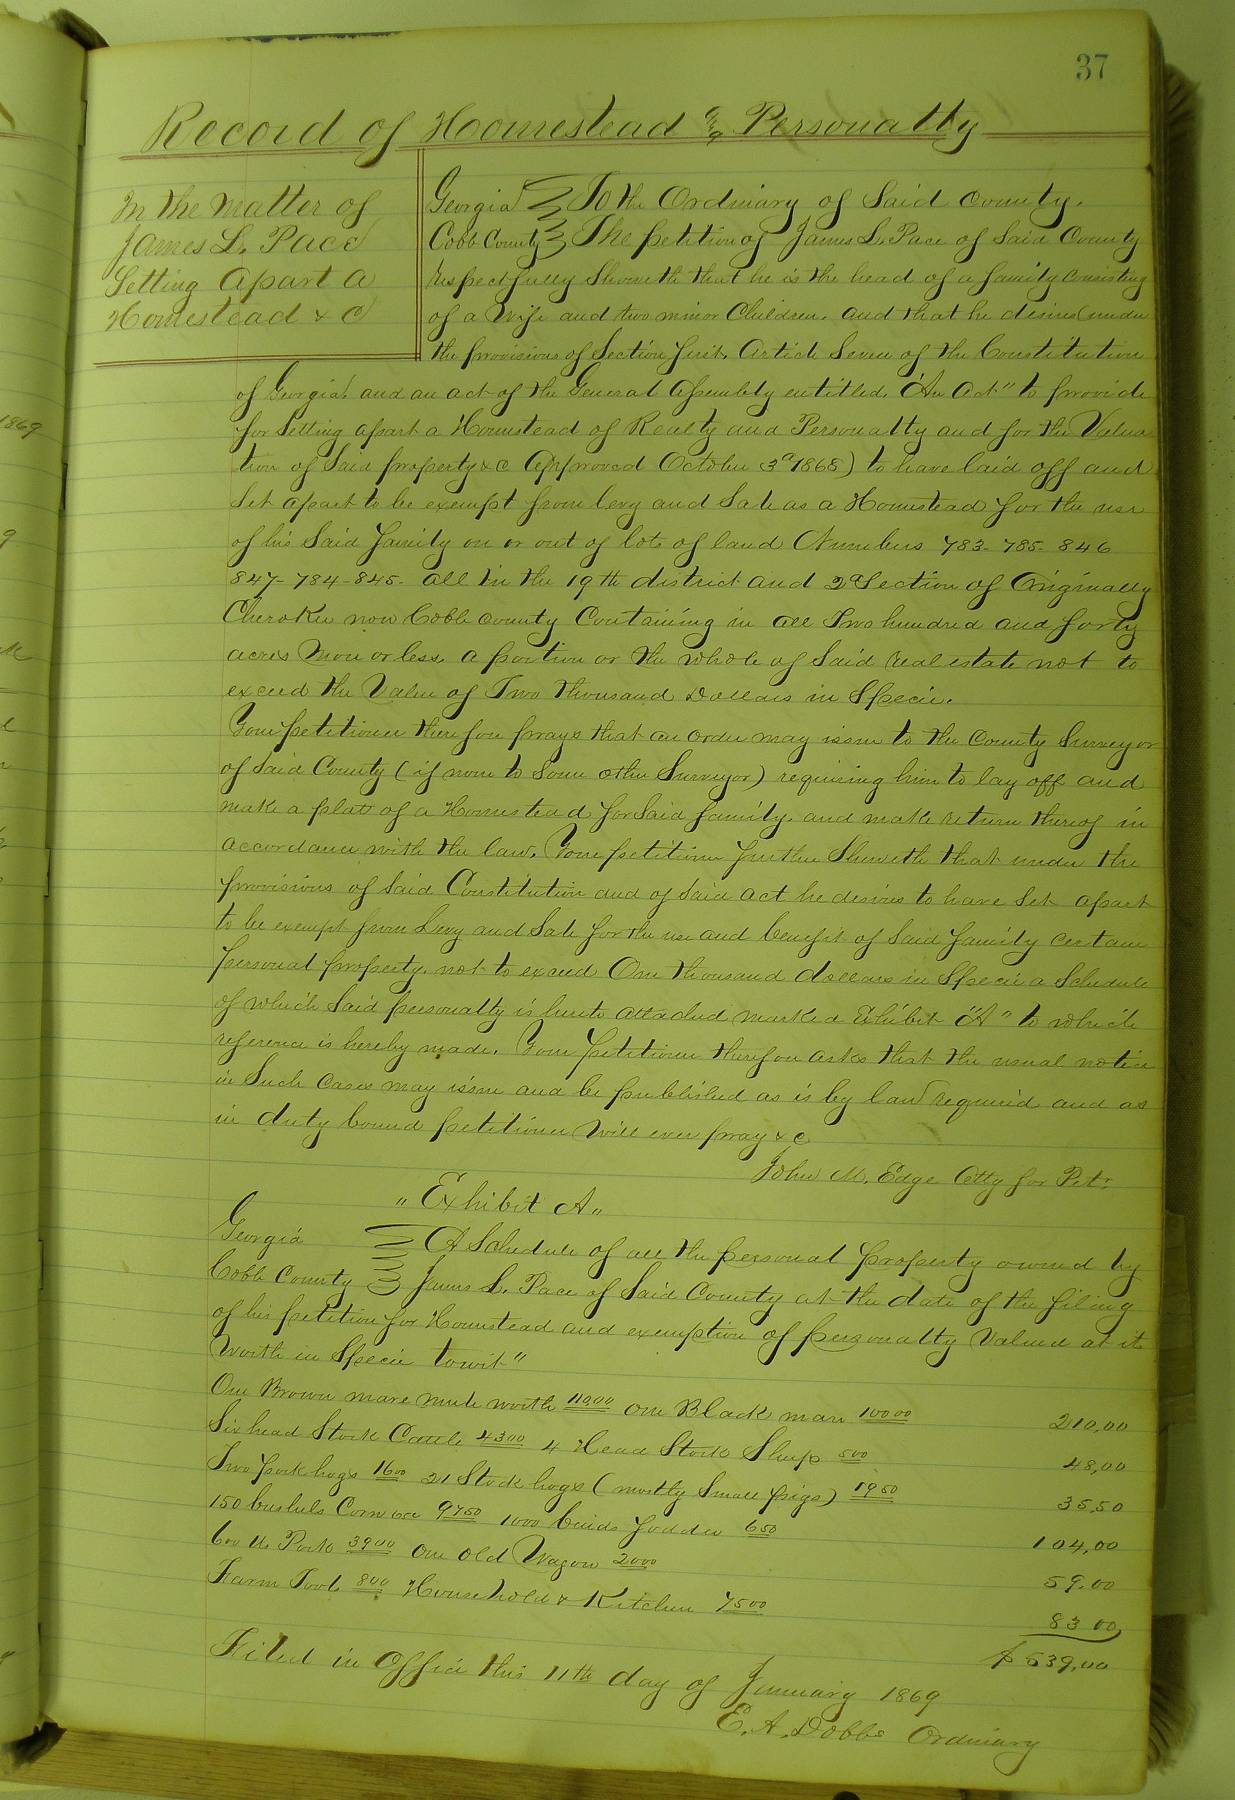 37
Record of Homestead & Personalty
In the matter of
James L. Pace
Setting apart a
Homestead & C
Georgia To the Ordinary of Said County.
Cobb County The petition of James L. Pace of Said County
respectfully Sheweth that he is the head of a family Consisting
of a Wife and two minor Children. and that he desires (under
the provisions of Section first, Article Seven of the Constitution
of Georgia, and an act of the General Assembly entitled, "An Act" to provide
for Setting apart a Homestead of Realty and Personalty and for the Valua
tion of Said property &c Approved October 3d 1868) to have laid off and
Set apart to be exempt from levy and Sale as a Homestead for the use
of his Said family on or out of lots of land Numbers 783- 785- 846
847- 784- 845- all in the 19th district and 2d Section of Originally
Cherokee now Cobb County Containing in all Two hundred and forty
acres More or less. a portion or the whole of Said real estate not to
exceed the Value of Two thousand Dollars in Specie.
Your petitioner therefore prays that an order may issue to the County Surveyor
of Said County (if none to Some other Surveyor) requiring him to lay off and
make a platt of a Homestead for Said family. and make return thereof in
accordance with the law. Your petitioner further Sheweth that under the
provisions of Said Constitution and of Said act he desires to have Set apart
to be exempt from Levy and Sale for the use and benefit of Said family certain
personal property. not to exceed One thousand dollars in Specie a Schedule
of which Said personalty is hereto attached marked Exhibit "A" to which
reference is hereby made. Your Petitioner therefore asks that the usual notice
in Such Cases may issue and be published as is by law required and as
in duty bound petitioner Will ever pray &c
John M. Edge Atty for Petr
"Exhibit A"
Georgia A Schedule of all the personal property owned by
Cobb County James L. Pace of Said County at the date of the filing
of his petition for Homestead and exemption of personalty Valued at it
Worth in Specie towit"
One Brown mare mule worth 110.00 One Black mare 100 00 210,00
Six head Stock Cattle 43 00 4 Head Stock Sheep 5 00 48,00
Two pork hogs 16 00 21 Stock hogs (mostly Small pigs) 19 50 35,50
150 bushels Corn 97 50 1000 binds fodder 6 50 104,00
600 lb Pork 39 00 One old Wagon 20 00 59.00
Farm Tools 8 00 Household & Kitchen 75 00 83 00
$ 539,00
Filed in Office this 11th day of January 1869
E. A. Dobbs Ordinary
1869
9